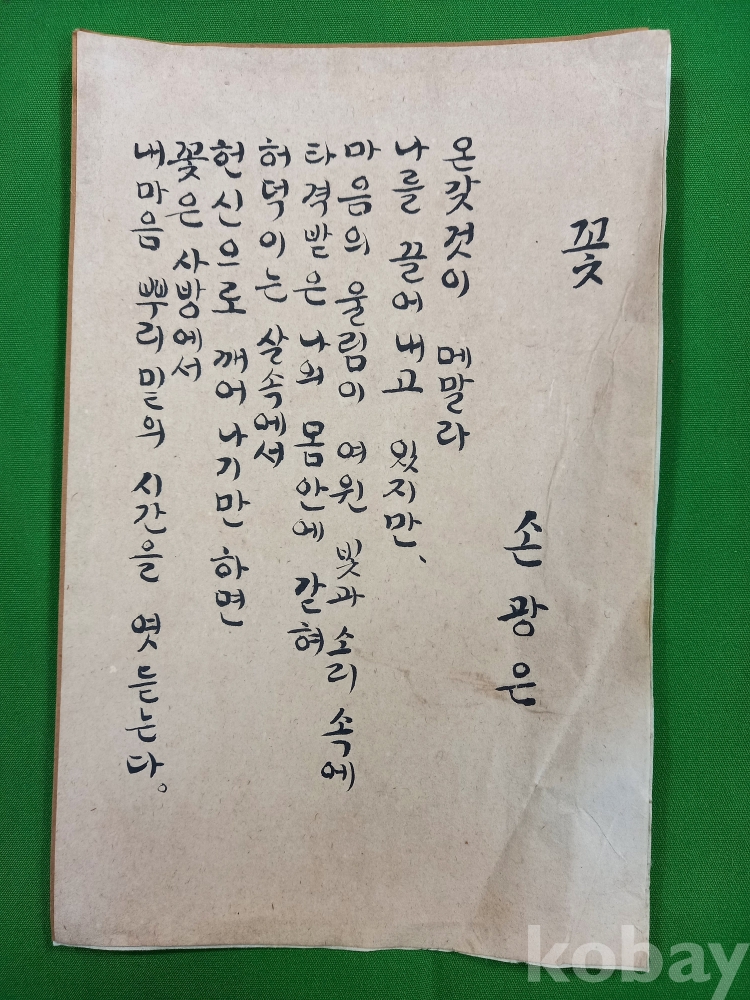 꽃
손광은
온갖것이 메말라
나를 끌어내고 있지만、
마음의 울림이 여윈 빛과 소리 속에
타격받은 나의 몸안에 갇혀
허덕이는 살속에서
헌신으로 깨어나기만 하면
꽃은 사방에서
내마음 뿌리밑의 시간을 엿듣는다。
kobay